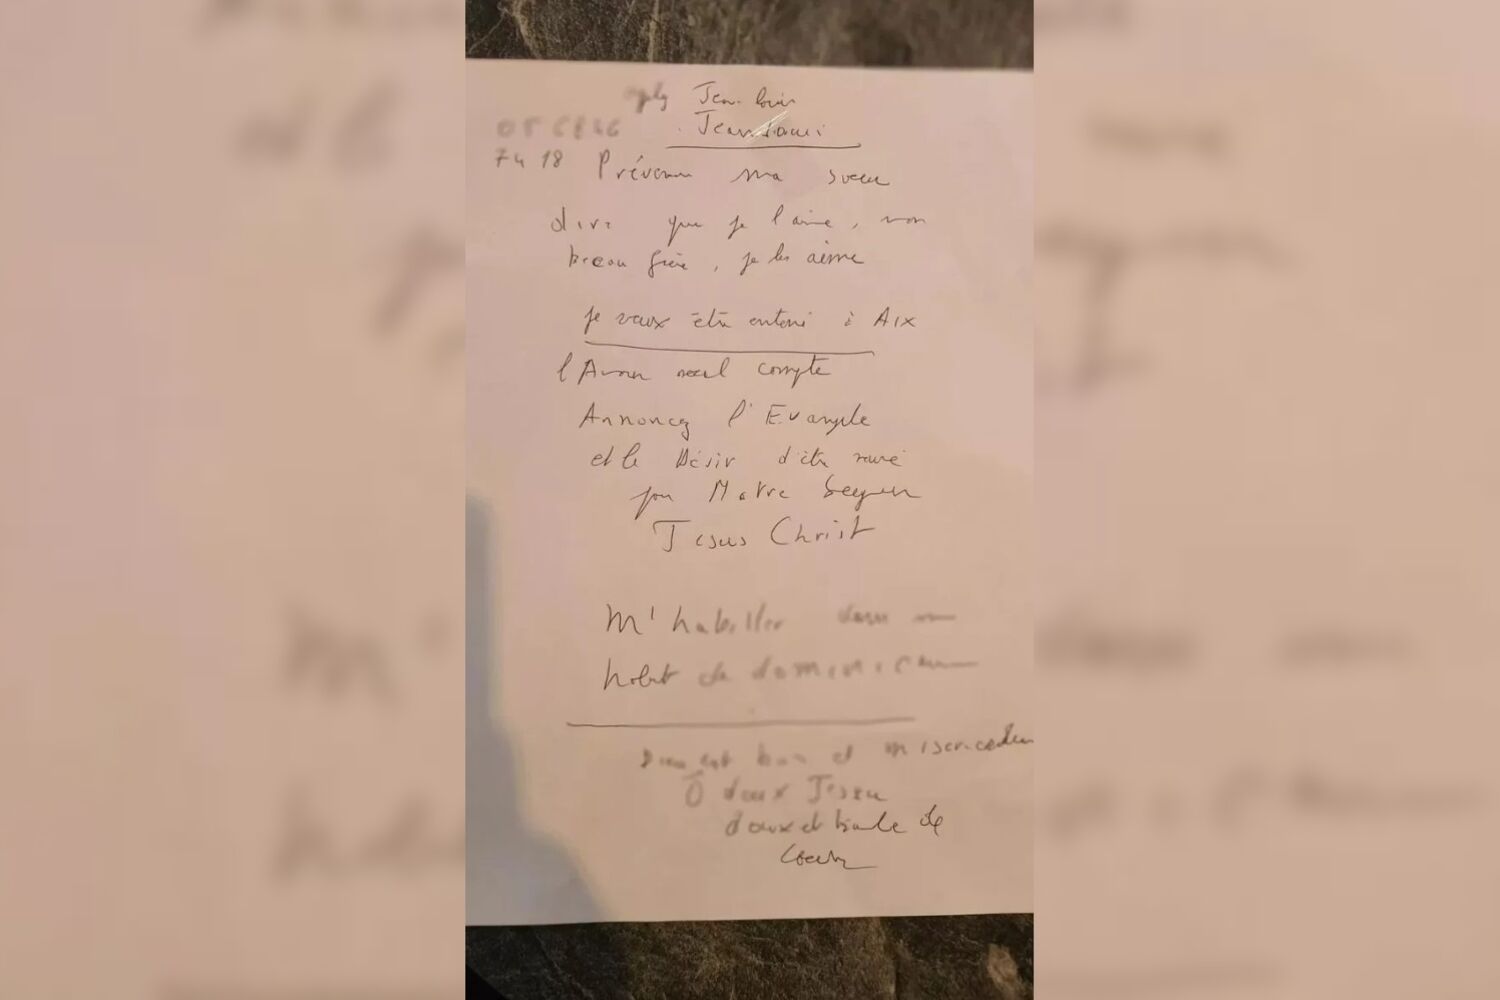 Jean Louis
Jean Louis
74 18 Prévenir ma soeur
dire que je l'aime, mon
beau frère, je les aime
je veux être enterré à Aix
l'Amour seul compte
Annoncez l'Evangile
et le Désir d'être
par Notre Seigneur
Jesus Christ
M'habiller dans un
habit de dominicain
Dieu est bon et misericordieux
Ô doux Jesus
doux et humble de
Coeur